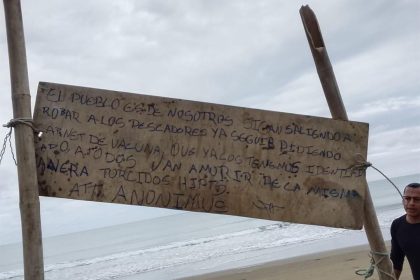 EL PUEBLO ES DE NOSOTROS SIGAN SALIENDO A
ROBAR A LOS PESCADORES YA SEGUIR PIDIENDO
CARNET DE VACUNA, QUE YA LOS TENEMOS IDENTIFI
A TODOS VAN AMURIR DE LA MISMA
MANERA TORCIDOS HI
ATT ANONIMUS